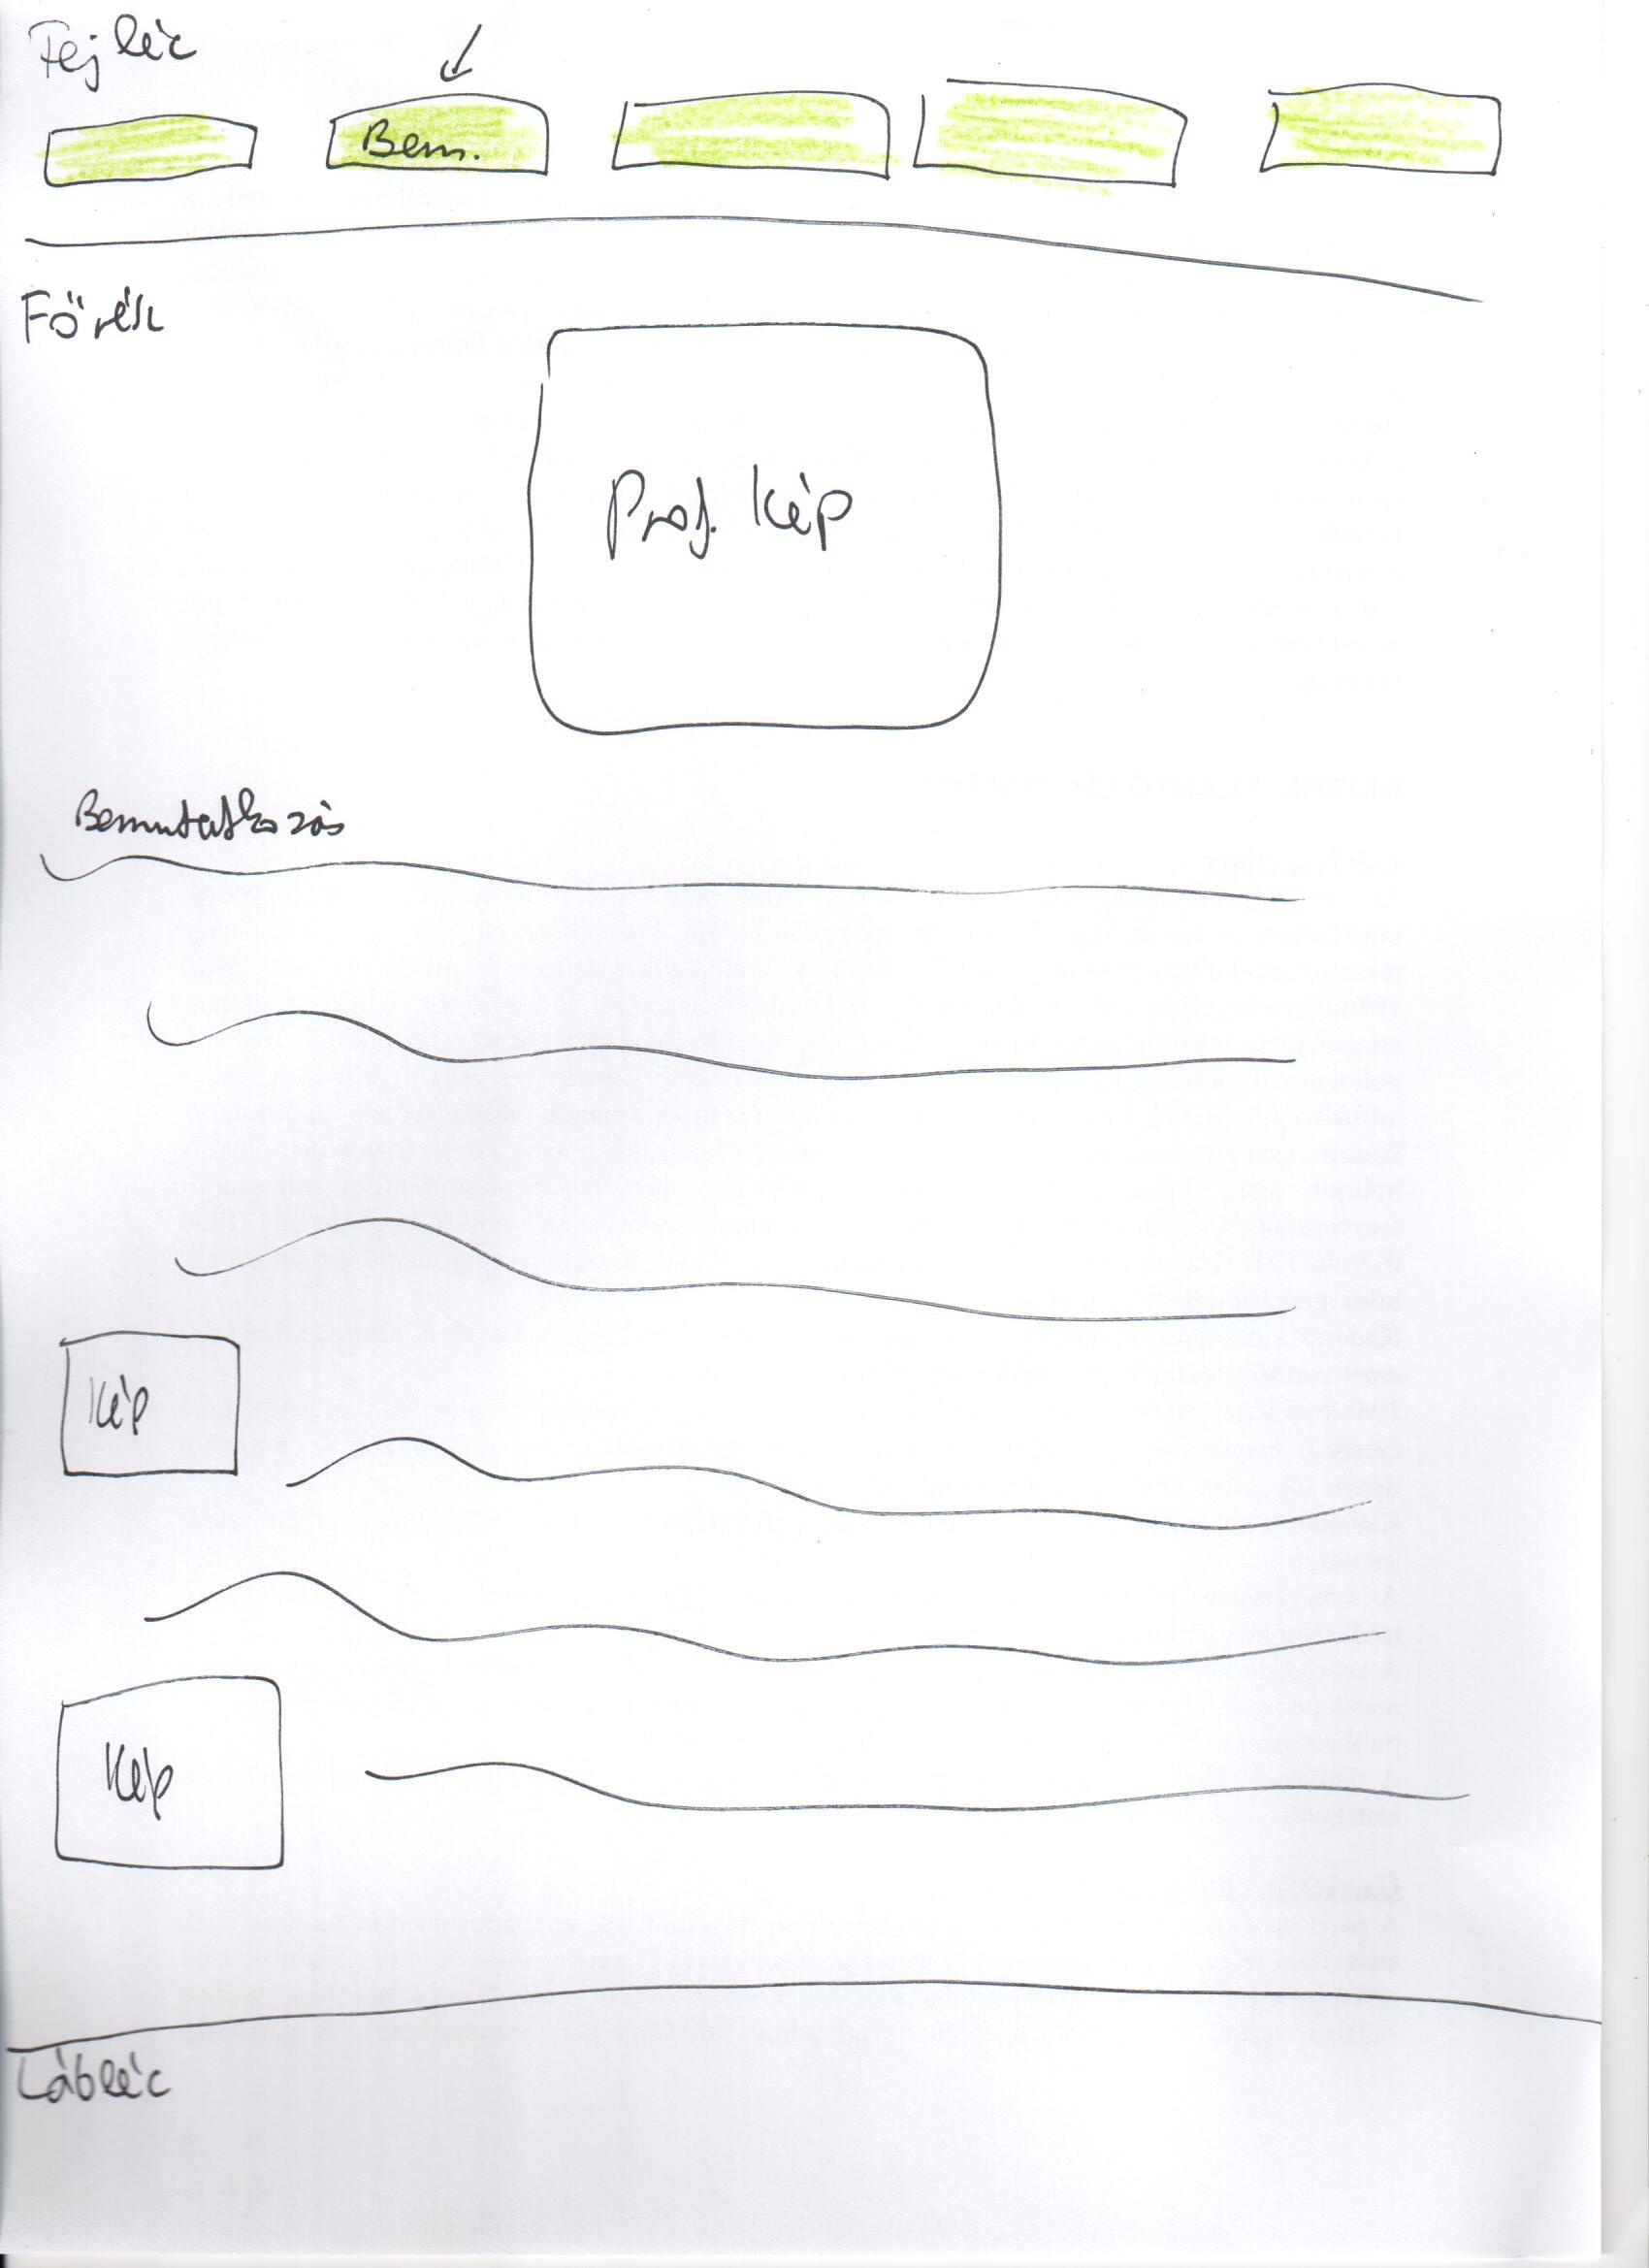 Fejléc
Bem.
Főrész
Prof. Kép
Bemutatkozás
Kép
Kép
Lábléc